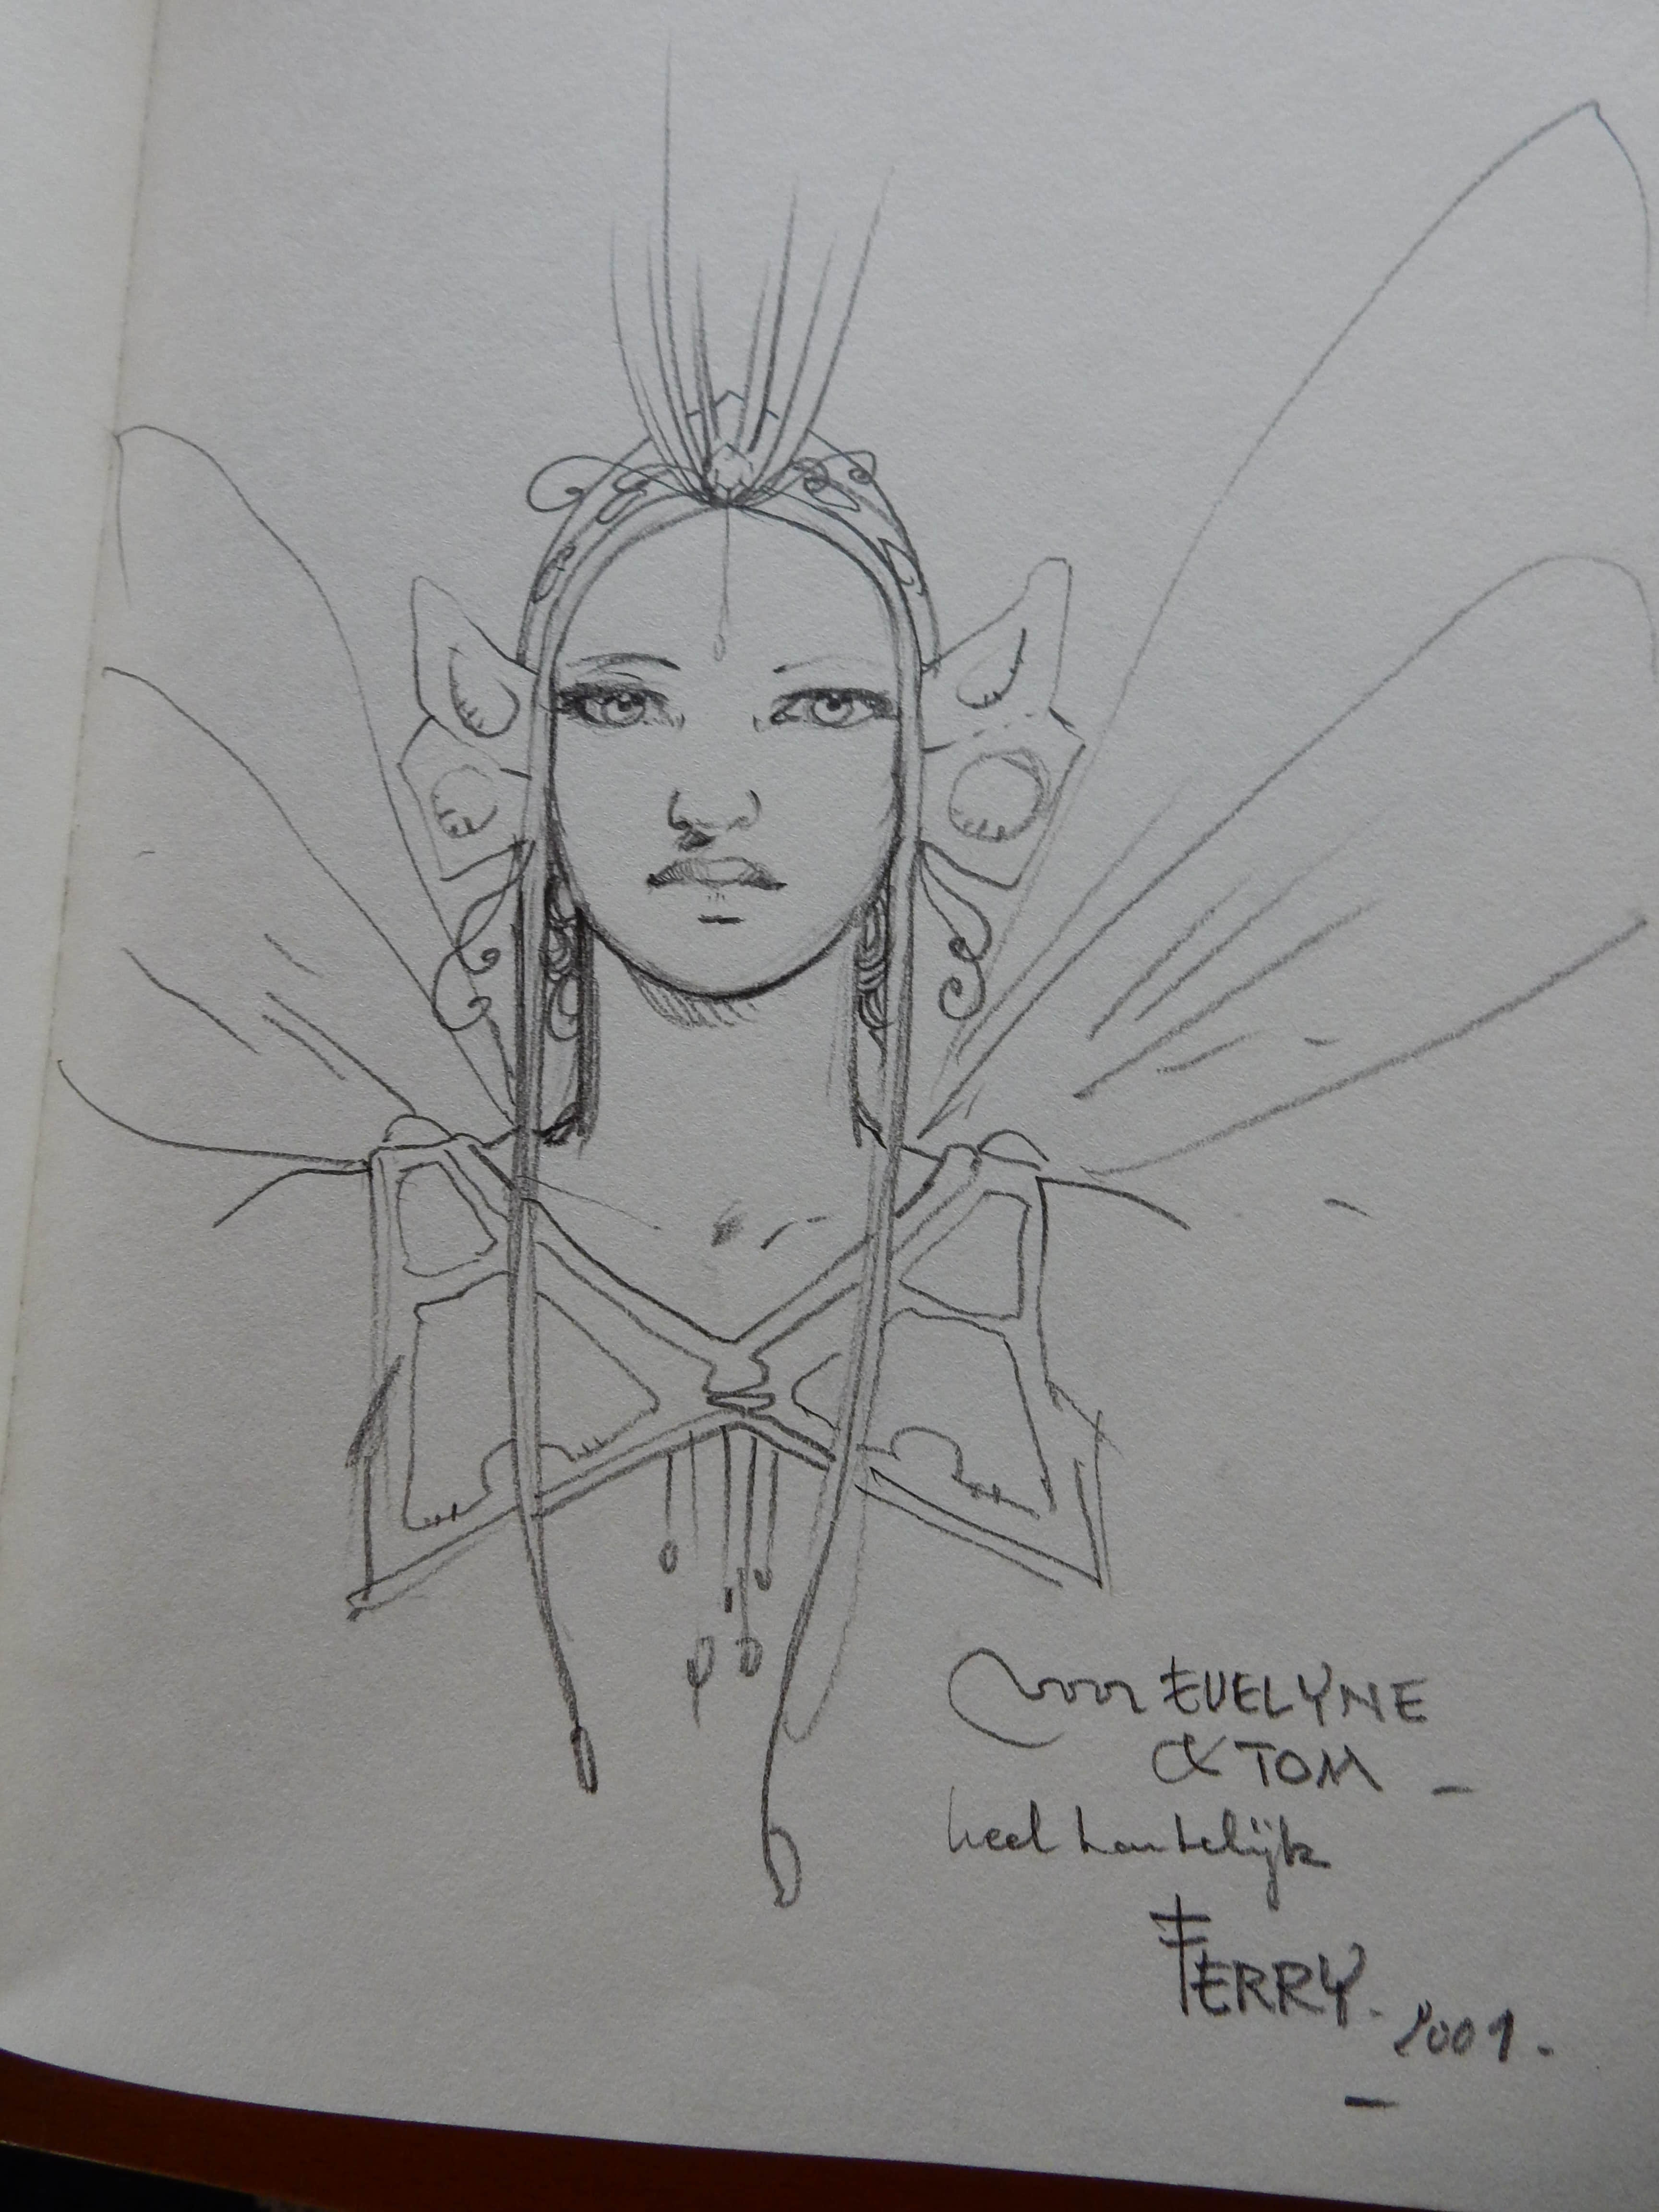 voor EVELYNE
& TOM -
heel hartelijk
FERRY. 2001.